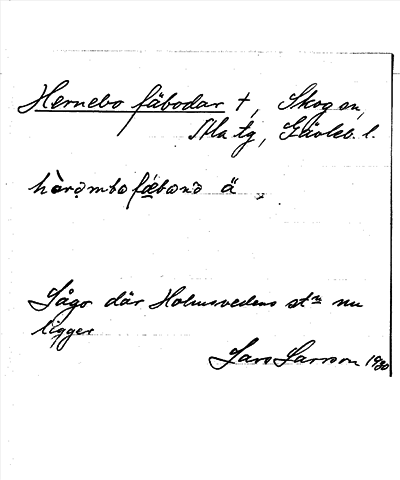 Hernebo fäbodar †, Skog sn,
Ala tg, Gävleb. l.
hὰrǝmbo fǽbωnɷ ä
Lågo där Holmsvedens stn nu
ligger
Lars Larsson 1930